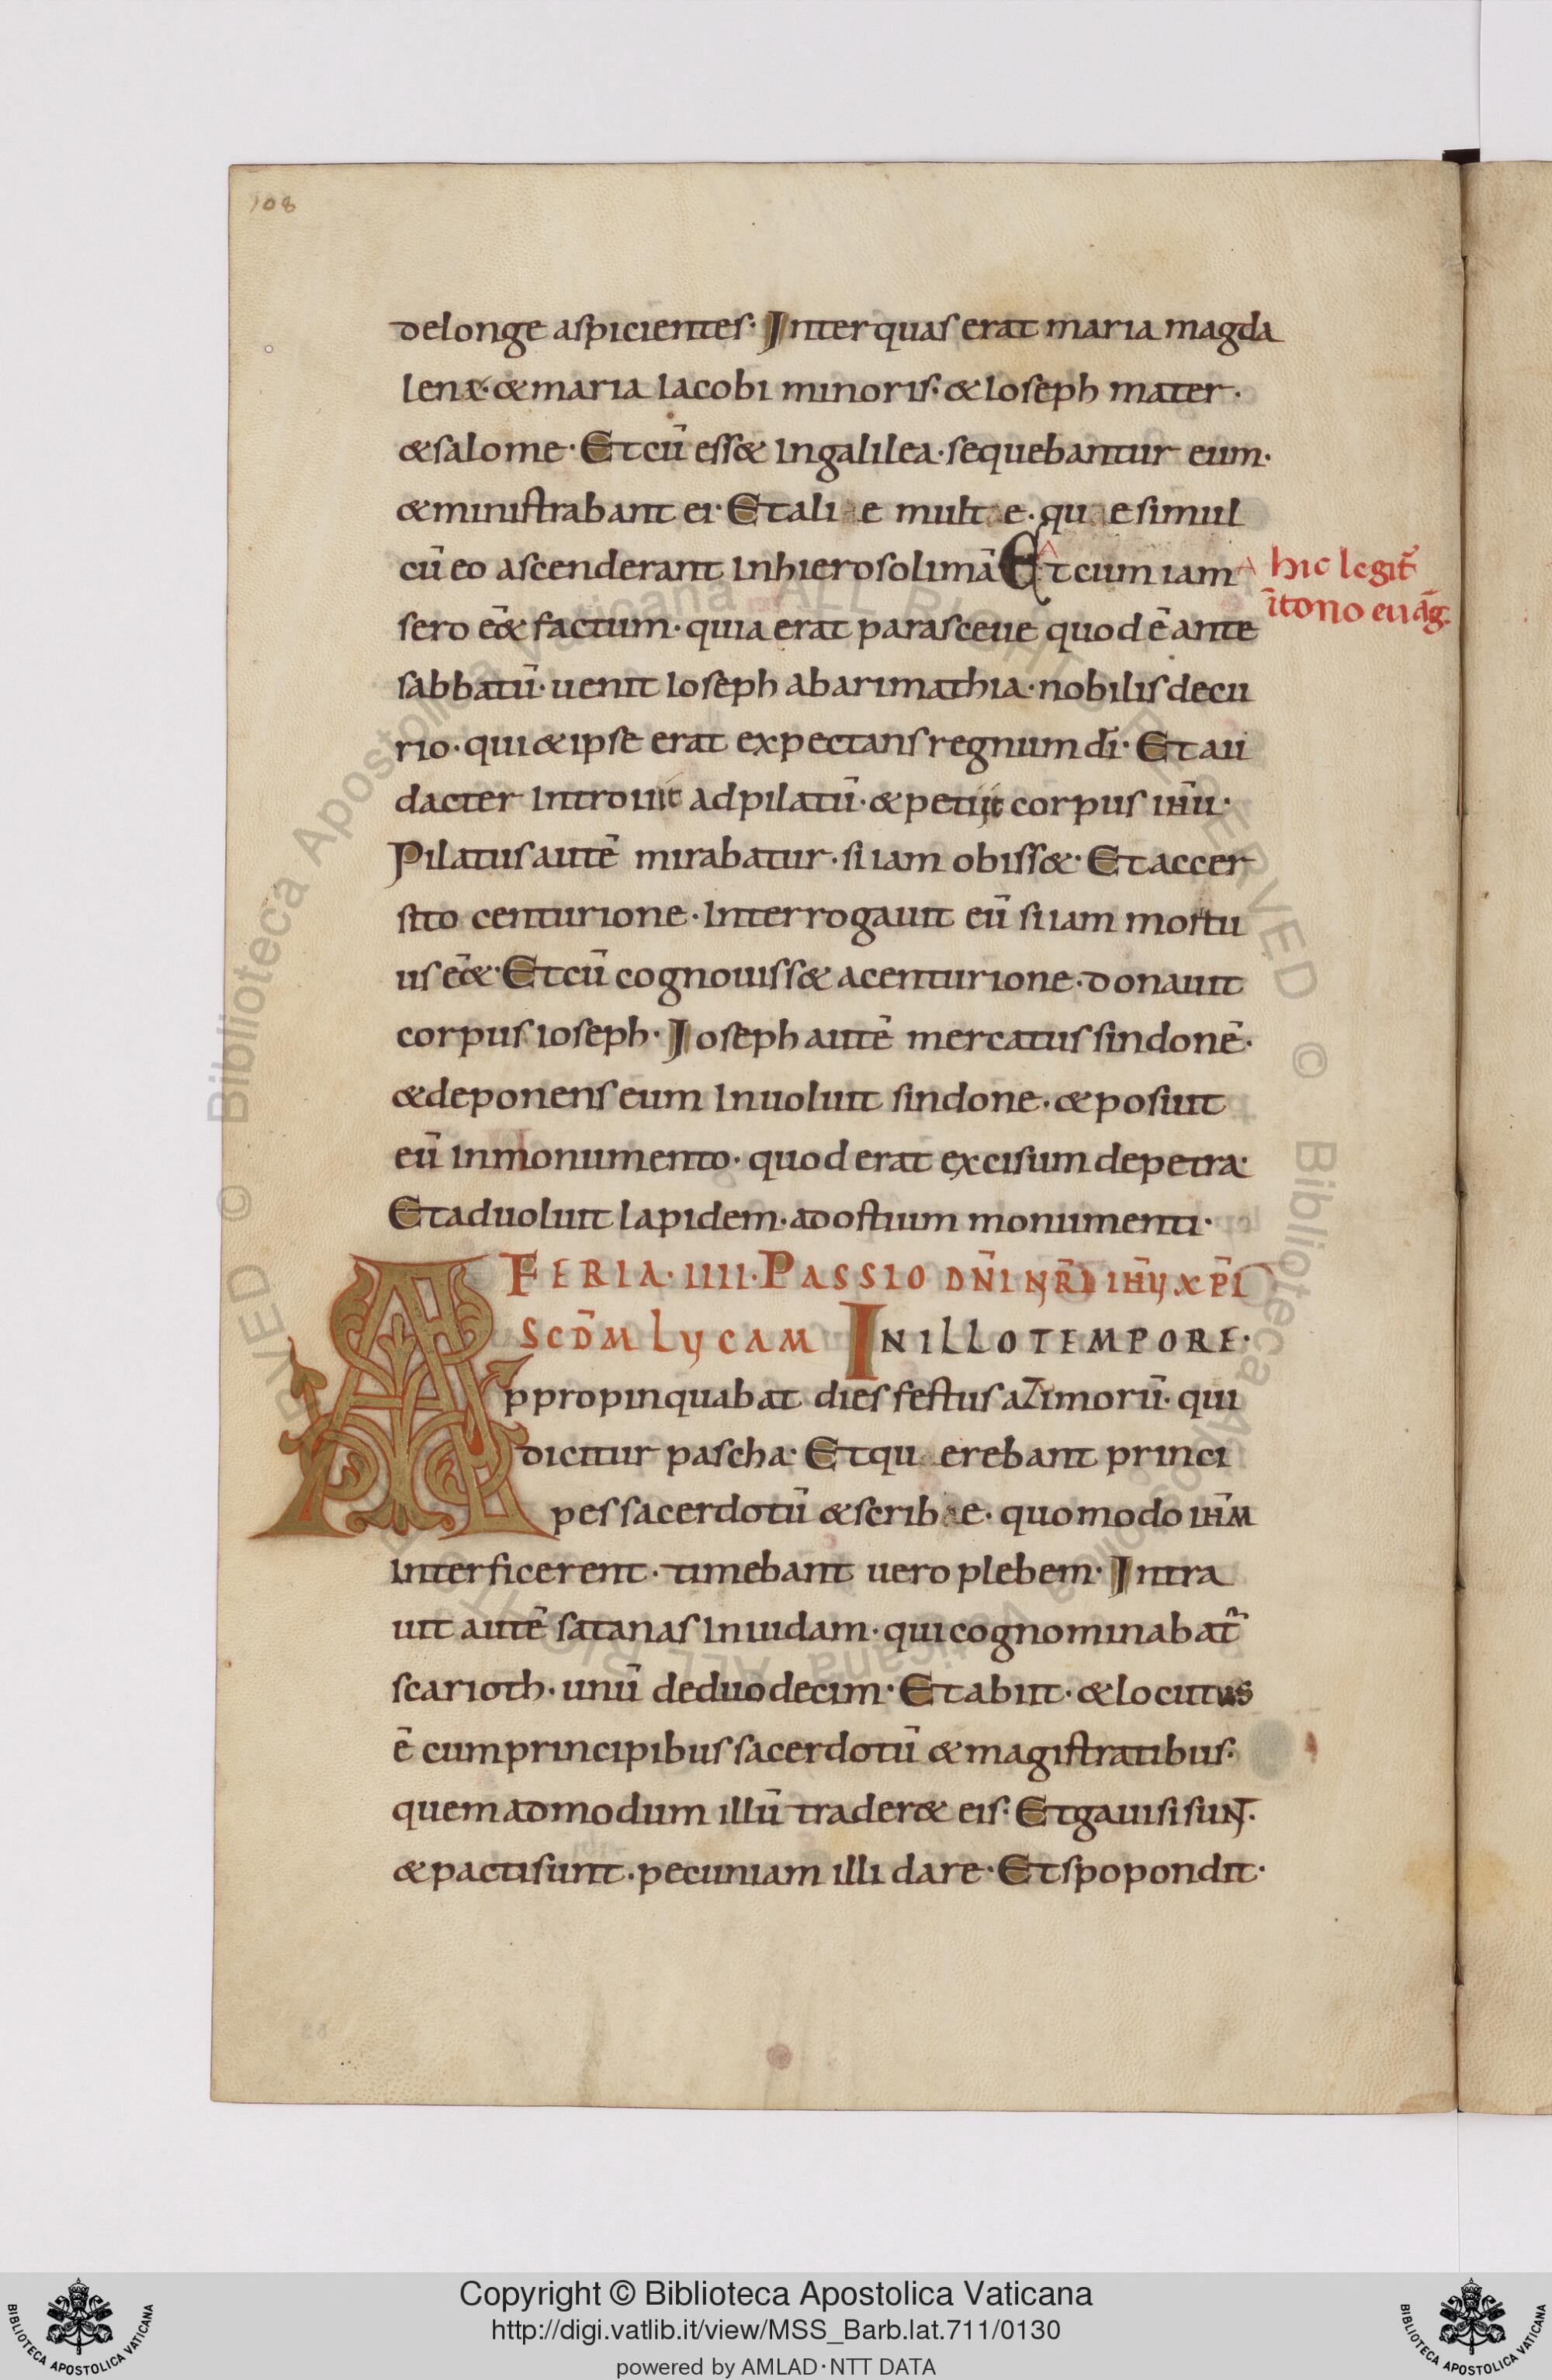 108
delonge aspicientes· Inter quas erat maria magda
lenæ· & maria Iacobi minoris· & Ioseph mater·
& salome· Et cū ess& In galilea· sequebantur eum·
& ministrabant ei· Et aliae multae· quae simul
cū eo ascenderant In hierosolimā Et cum iam
hic legit̄
ītono euāḡ.
sero eē& factum· quia erat parasceue quod ē ante
sabbatū· uenit Ioseph ab arimathia· nobilis decu
rio· qui & ipse erat expectans regnum dī· Et au
dacter Introiuit ad pilatū· & petiit corpus ihū·
Pilatus autē mirabatur· si iam obiss&· Et accer
sito centurione· Interrogauit eū si iam mortu
us eē&· Et cū cognouiss& a centurione· donauit
corpus ioseph· Ioseph autē mercatus sindonē·
& deponens eum Inuoluit sindone· & posuit
eū In monumento· quod erat excisum de petra·
Et aduoluit lapidem· ad ostium monumenti·
FERIA· IIII· PASSIO DN̄I NR̄I IHY XPI
SCDM LYCAM IN ILLO TEMPORE·
Appropinquabat dies festus aZimorū· qui
dicitur pascha· Et quaerebant princi
pes sacerdotū & scribae· quomodo ihm̄
Interficerent· timebant uero plebem· Intra
uit autē satanas In iudam· qui cognominabat̄
scarioth· unū de duodecim· Et abiit· & locutus
ē cum principibus sacerdotū & magistratibus·
quemadmodum illū trader& eis· Et gauisi sunt·
& pacti sunt· pecuniam illi dare· Et spopondit·
© Biblioteca Apostolica Vaticana ALL RIGHTS RESERVED © Biblioteca Apostolica Vaticana ALL RIGHTS RESERVED
Copyright © Biblioteca Apostolica Vaticana
http://digi.vatlib.it/view/MSS_Barb.lat.711/0130
powered by AMLAD·NTT DATA
BIBLIOTECA APOSTOLICA VATICANA
BIBLIOTECA APOSTOLICA VATICANA